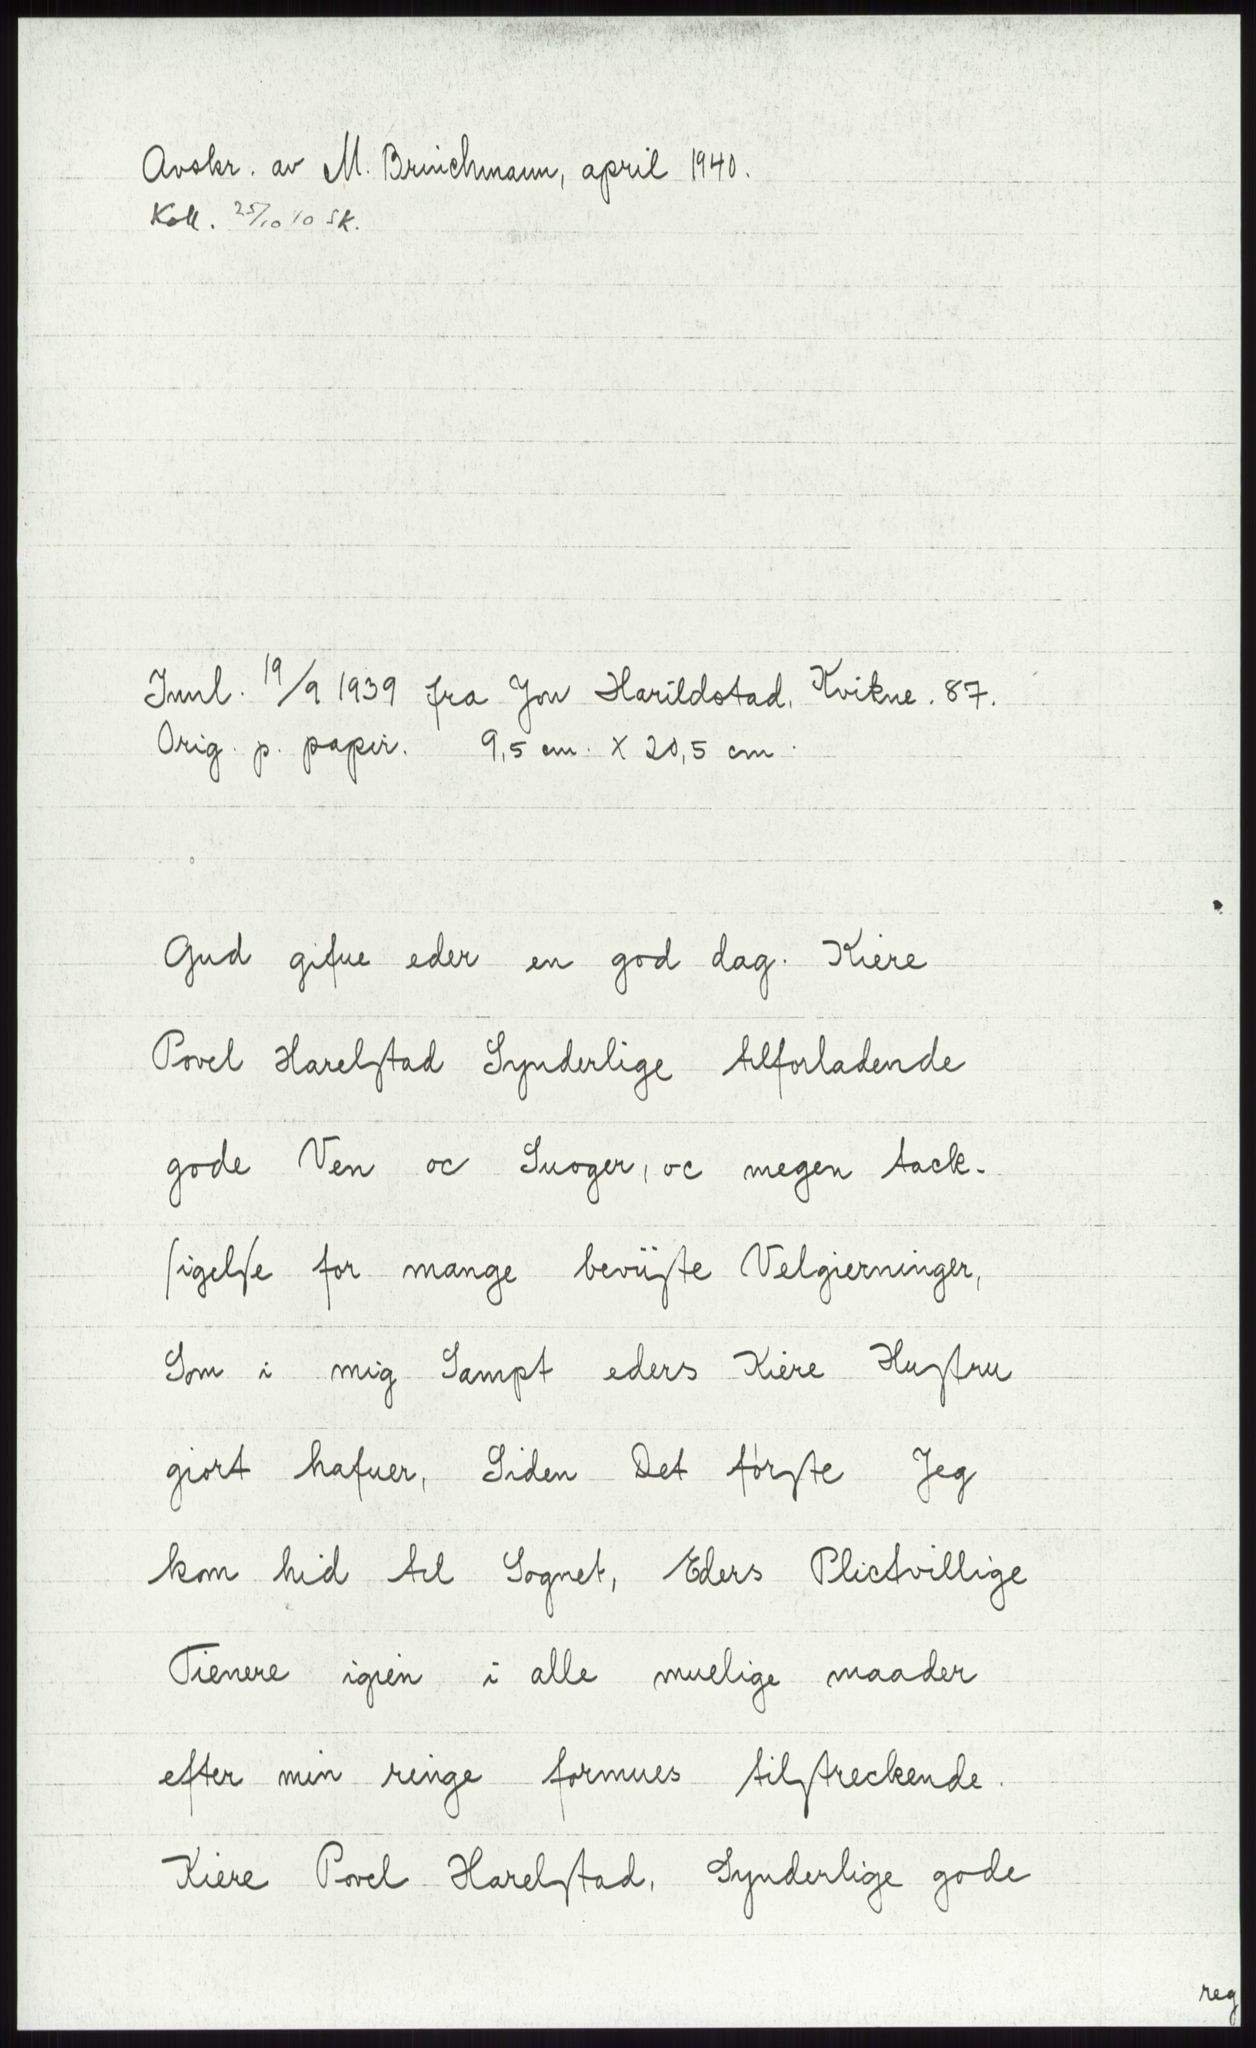 Avskr. av M. Brinchmann, april 1940.
Koll. 25/10 40 SK.
Innl. 19/9 1939 fra Jon Harildstad, Kvikne. 87.
Orig. p. papir. 9,5 cm. x 20,5 cm.
Gud gifue eder en god dag. Kiere
Povel Harelstad Synderlige tilforladende
gode Ven oc Suoger, oc megen tack-
sigelse for mange beviiste Velgierninger,
Som i mig Sampt eders Kiere Hustru
giort hafuer, Siden Det første Jeg
kom hid til Sognet, Eders Plictvillige
Tienere igien i alle muelige maader
efter min ringe formues tilstreckende.
Kiere Povel Harelstad, Synderlige gode
reg